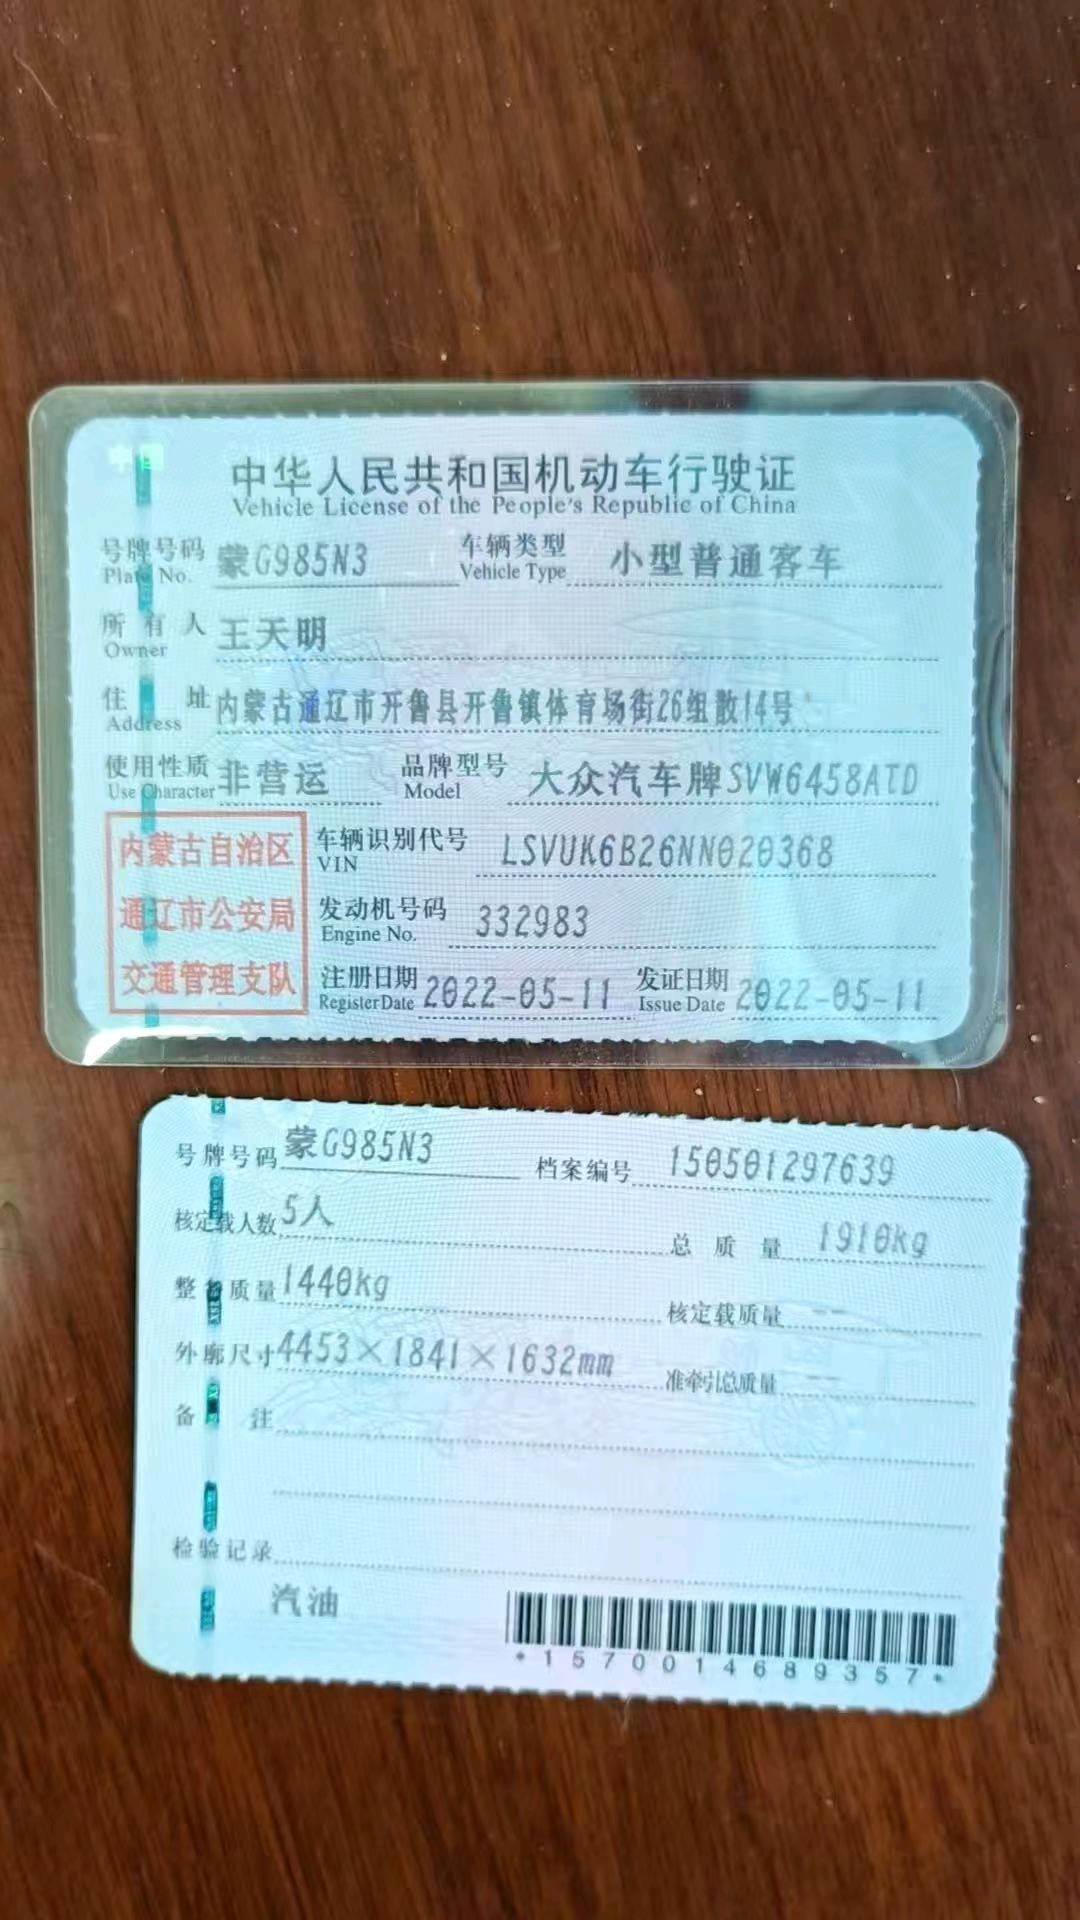 中国
中华人民共和国机动车行驶证
Vehicle License of the People's Republic of China
号牌号码 蒙G985N3 车辆类型 小型普通客车
Plate No. Vehicle Type
所有人 王天明
Owner
住址 内蒙古通辽市开鲁县开鲁镇体育场街26组散14号
Address
使用性质 非营运 品牌型号 大众汽车牌SVW6458ATD
Use Character Model
内蒙古自治区
通辽市公安局
交通管理支队
车辆识别代号 LSVUK6B26NN020368
VIN
发动机号码 332983
Engine No.
注册日期 2022-05-11 发证日期 2022-05-11
Register Date Issue Date
号牌号码 蒙G985N3 档案编号 150501297639
核定载人数 5人 总质量 1910kg
整备质量 1440kg 核定载质量 --
外廓尺寸 4453×1841×1632mm 准牵引总质量 --
备注
检验记录
汽油
*1570014689357*